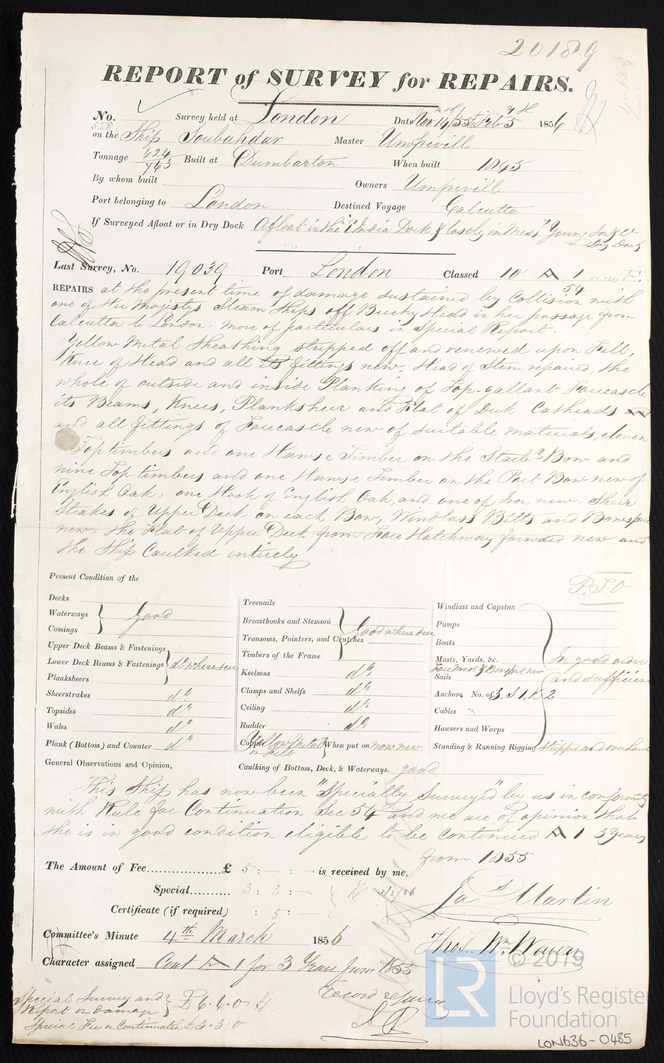 20189
REPORT of SURVEY for REPAIRS.
No. Survey held at London Date 1856
on the Ship Soubahdar Master Umfrevill
Tonnage 624 763 Built at Dumbarton When built 1845
By whom built Owners Umfrevill
Port belonging to London Destined Voyage Calcutta
If Surveyed Afloat or in Dry Dock Afloat in the India Dock & lastly in Messrs Young Son & Co
Dry Dock
Last Survey, No. 19039 Port London Classed 10 A 1
54
REPAIRS at the present time of damage sustained by Collision with
one of Her Majestys Steam Ships off Beachy Head in her passage from
Calcutta to London, more of particulars in Special Report.
Yellow Metal Sheathing stripped off and renewed upon Felt,
Knee of Head and all its fittings new, Head of Stem repaired, the
whole of outside and inside Planking of Top-gallant Forecastle
its Beams, Knees, Planksheer and Flat of Deck Catheads
and all fittings of Forecastle new of suitable materials, eleven
Toptimbers and one Hawse Timber on the Starbd Bow and
nine Top timbers and one Hawse Timber on the Port Bow new of
English Oak, one Hook of English Oak and one of Iron new. Three
Strakes of Upper Deck on each Bow, Windlass Bitts and Bowsprit
new, the Flat of Upper Deck from Fore Hatchway forward new and
the Ship Caulked entirely
P.T.O
Present Condition of the
Decks
Waterways
Comings
Good
Upper Deck Beams & Fastenings
Lower Deck Beams & Fastenings
Planksheers
do where seen
Sheerstrakes do
Topsides do
Wales do
Plank (Bottom) and Counter do
Treenails
Breasthooks and Stemson
Transoms, Pointers, and Crutches
Timbers of the Frame
Good where seen
Keelsons do
Clamps and Shelfs do
Ceiling do
Rudder do
Copper Yellow Metal on Felt When put on now new
Caulking of Bottom, Deck, & Waterways. good
Windlass and Capstan
Pumps
Boats
Masts, Yards, &c.
Fore Mast & Bowsprit new
Sails
In good order
and sufficient
Anchors No. of 3. S 1. K 2
Cables
Hawsers and Warps
Standing & Running Rigging stripped and overhauled
General Observations and Opinion,
This Ship has now been "Specially Surveyed" by us in conformity
with Rule for Continuation Sec 54 and we are of opinion that
she is in good condition eligible to be continued A 1 3 years
from 1855
The Amount of Fee £ 5 : - : - is received by me,
Special 3 : 3 : -
Certificate (if required) : 5 : -
Jas Martin
Committee's Minute 4th March 1856
Character assigned Cont A 1 for 3 Years from 1855
Record repairs
Special Survey and
Report on Damage £6.6.0
Special Fee on Continuation £3.3.0
LR
© 2019
Lloyd's Register
Foundation
LON636-0485